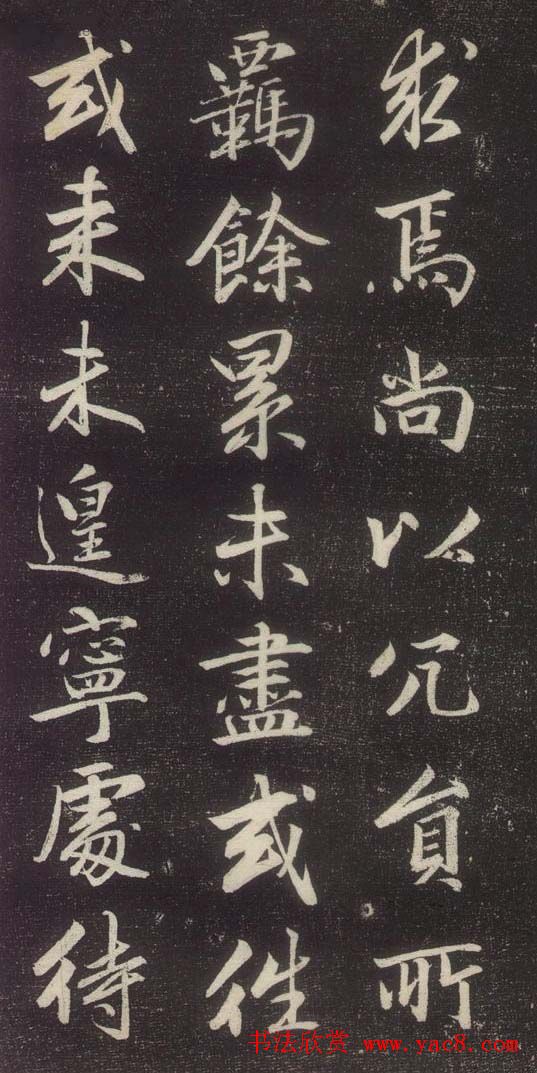 求焉尚以冗員所
羈餘累未盡或往
或来未遑寧處待
书法欣赏 www.yac8.com